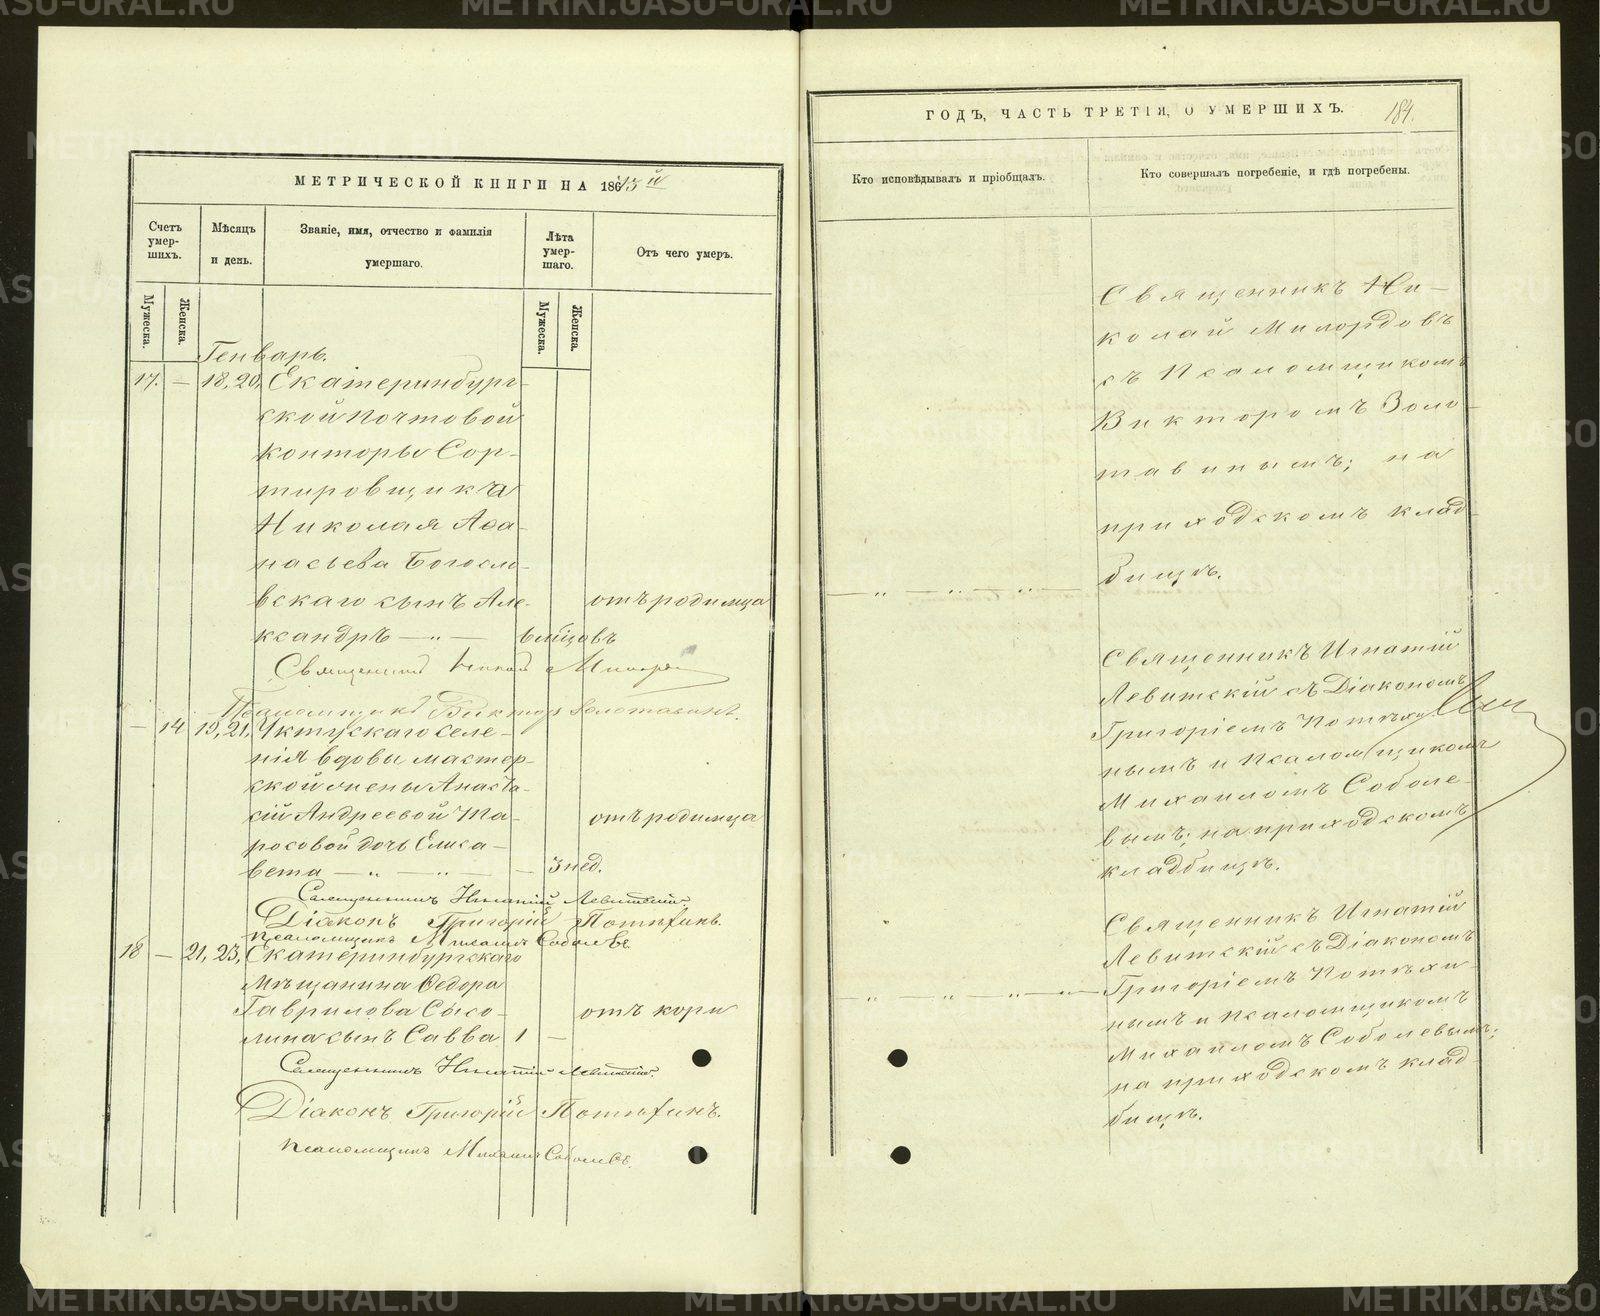 МЕТРИЧЕСКОЙ КНИГИ НА 186
Счетъ умер-шихъ.
Мѣсяцъ и день.
Званіе, имя, отчество и фамилія умершаго.
Лѣта умер-шаго.
Отъ чего умеръ.
Мужеска.
Женска.
Мужеска.
Женска.
Генварь.
17. — 18, 20, Екатеринбург-
ской почтовой
конторы Сор-
тировщика
Николая Аѳа-
насьева Богосло-
вскаго сынъ Але- отъ родимца
ксандръ — „ —
Священникъ Николай Милордовъ
Псаломщикъ Викторъ Золотавинъ.
— 14 19, 21, Уктускаго селе-
нія вдовы мастер-
ской жены Анаста-
сіи Андреевой Та- отъ родимца
росовой дочь Елиса-
вета — „ — „ — — 3 нед.
Священникъ Игнатій Левитскій.
Діаконъ Григорій Потѣхинъ.
Псаломщикъ Михаилъ Соболевъ
18 — 21, 23, Екатеринбургскаго
мѣщанина Ѳедора
Гаврилова Сысо- отъ кори
лина сынъ Савва 1 —
Священникъ Игнатій Левитскій.
Діаконъ Григорій Потѣхинъ.
Псаломщикъ Михаилъ Соболевъ.
ГОДЪ, ЧАСТЬ ТРЕТІЯ, О УМЕРШИХЪ. 184.
Кто исповѣдывалъ и пріобщалъ.
Кто совершалъ погребеніе, и гдѣ погребены.
Священникъ Ни-
колай Милордовъ
съ Псаломщикомъ
Викторомъ Золо-
тавинымъ; на
приходскомъ клад-
— „ — „ — „ — бищѣ.
Священникъ Игнатій
Левитскій съ Діакономъ
Григоріемъ Потѣхи-
нымъ и Псаломщикомъ
Михаиломъ Соболе-
вымъ; на приходскомъ
кладбищѣ.
Священникъ Игнатій
Левитскій съ Діакономъ
— „ — „ — „ — Григоріемъ Потѣхи-
нымъ и Псаломщикомъ
Михаиломъ Соболевымъ;
на приходскомъ клад-
бищѣ.
METRIKI.GASU-URAL.RU